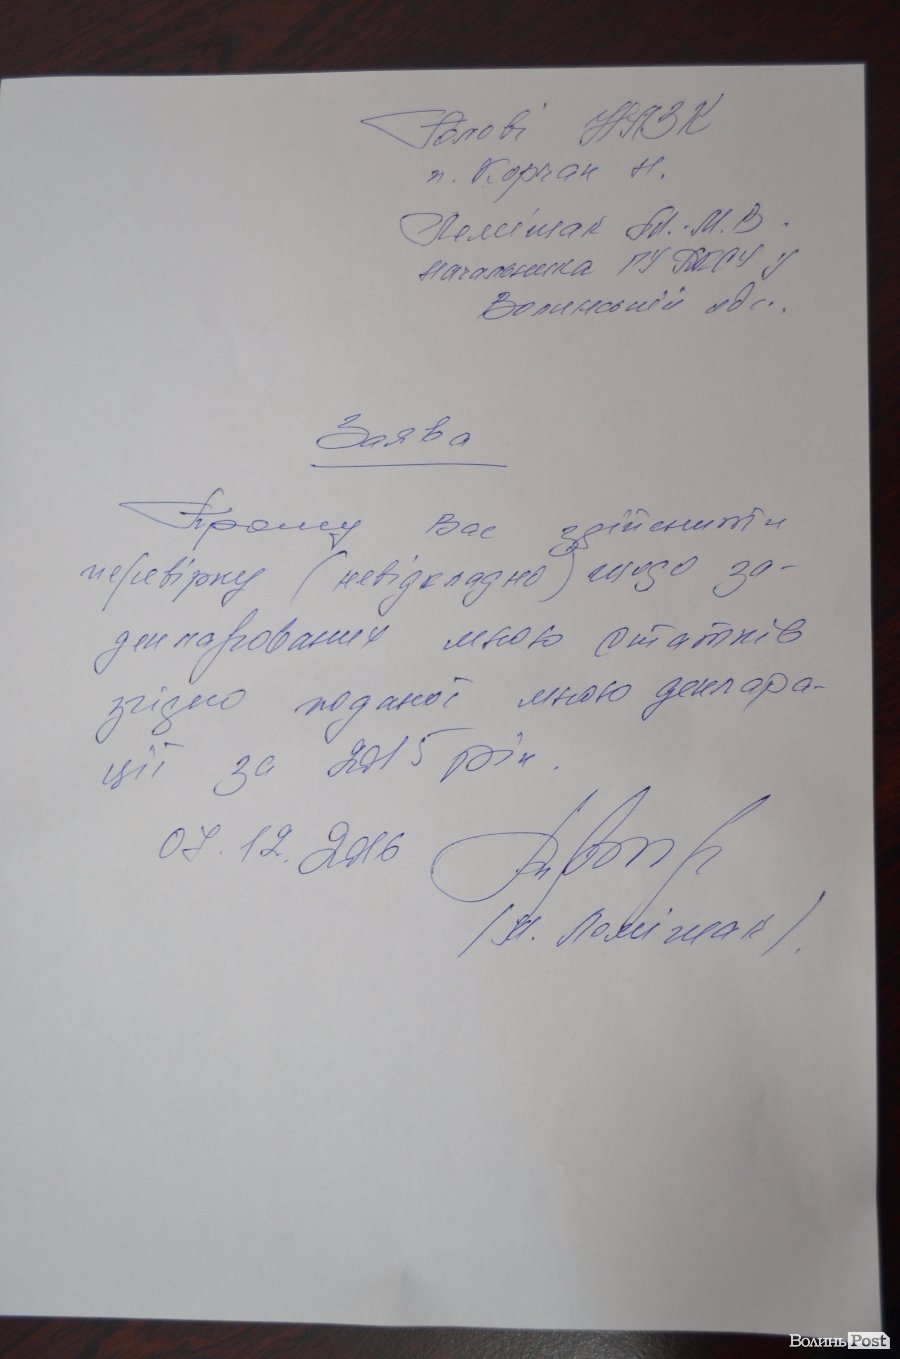 Голові НАЗК
п. Корчак Н.
Поміщак М.В.
начальника ГУ ДКСУ у
Волинській обл.
Заява
Прошу Вас здійснити
перевірку (невідкладно) щодо за-
декларованих мною статків
згідно поданої мною деклара-
ції за 2015 рік.
07.12.2016
( Поміщак ).
ВолиньPost